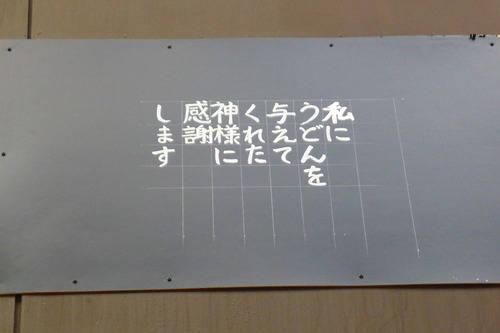 私に
うどんを
与えて
くれた
神様に
感謝
します